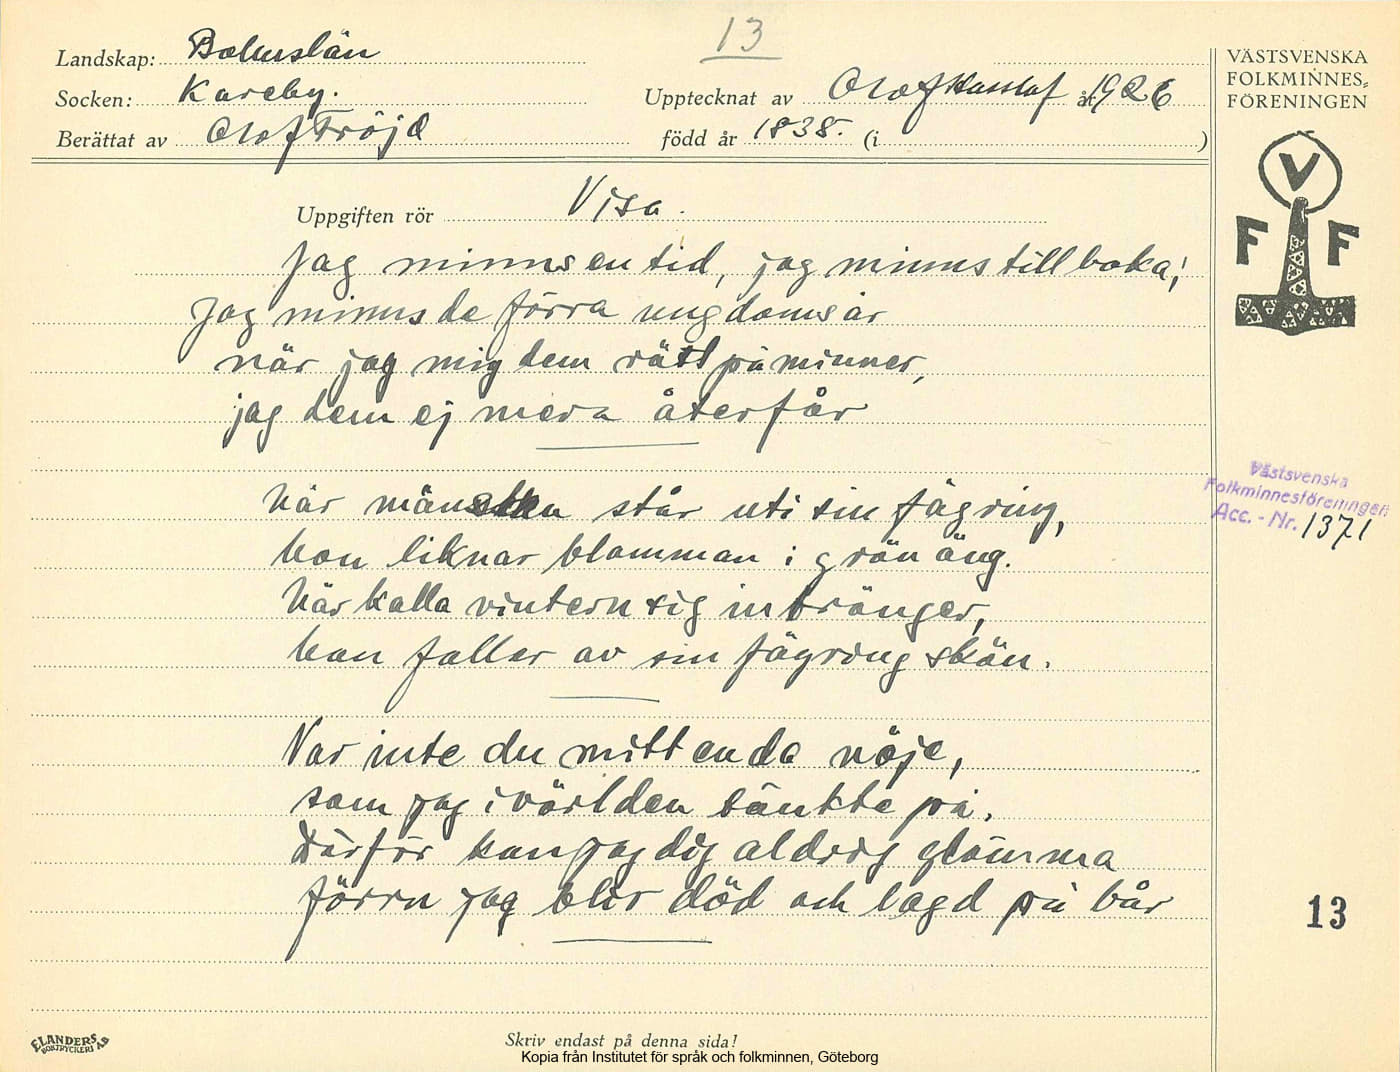 13
Landskap: Bohuslän
Socken: Kareby.
Upptecknat av Olof Hasslöf år 1926
Berättat av Olof Fröjd
född år 1838. (i )
VÄSTSVENSKA
FOLKMINNES-
FÖRENINGEN
V
F F
Uppgiften rör Visa.
Jag minns en tid, jag minns tillbaka;
Jag minns de förra ungdomsår
när jag mig dem rätt påminner,
jag dem ej mera återfår
När människa står uti sin fägring,
hon liknar blomman i grön äng.
När kalla vintern sig intränger,
hon faller av sin fägring skön.
Var inte du mitt enda nöje,
som jag i världen tänkte på.
Därför kan jag dig aldrig glömma
förrn jag blir död och lagd på bår
Västsvenska
Folkminnesföreningen
Acc. - Nr. 1371
13
ELANDERS
BOKTRYCKERI AB
Skriv endast på denna sida!
Kopia från Institutet för språk och folkminnen, Göteborg